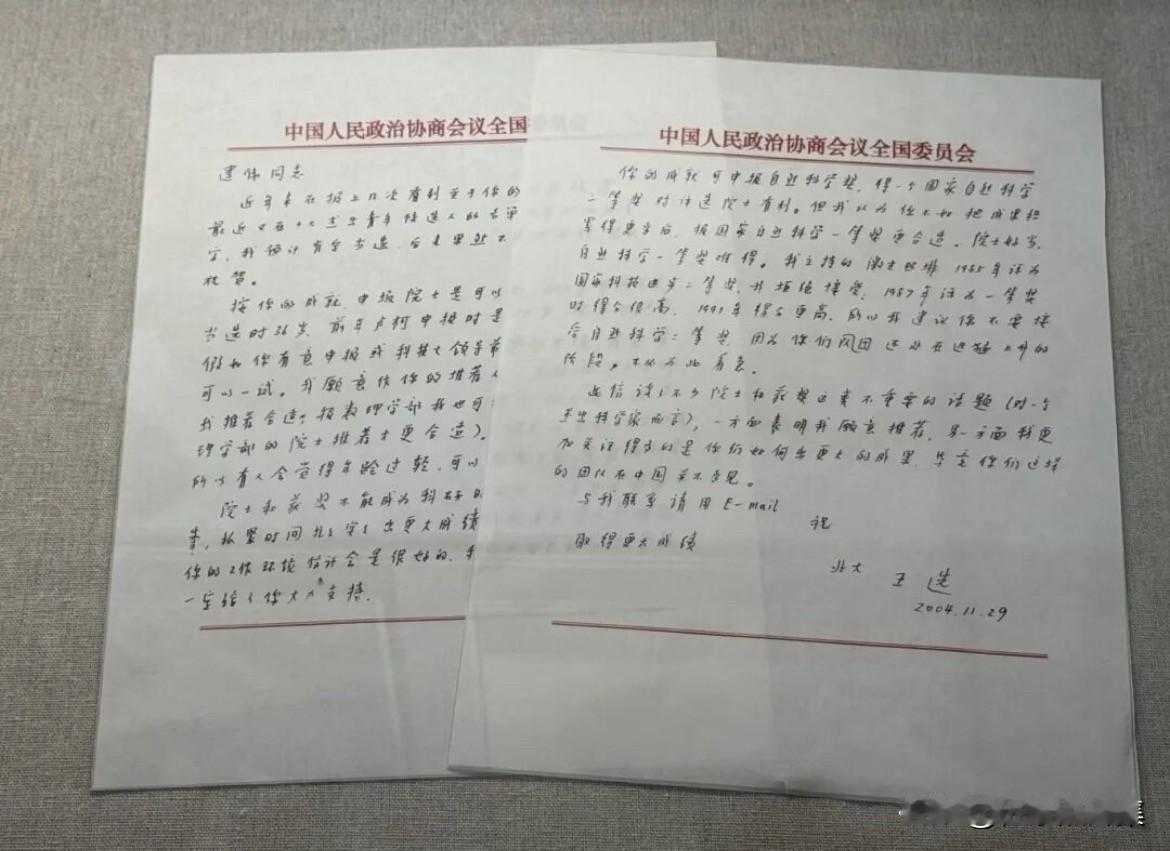 中国人民政治协商会议全国
建伟同志
近年来在报上几次看到关于你的
最近又在十大杰出青年候选人的名单
字，我预计有望当选，后来果然不
祝贺。
按你的成就申报院士是可以
当选时36岁，前年卢柯申报时是
假如你有意申报或科技大领导
可以一试。我愿意作你的推荐人
我推荐合适？报数理学部我也可
理学部的院士推荐才更合适）。
所以有人会觉得年龄过轻，可以
院士和获奖不能成为科研
，抓紧时间扎扎实实出更大成绩
你的工作环境估计会是很好的，
一定给了你大力支持。
中国人民政治协商会议全国委员会
你的成就可申报自然科学奖，得一个国家自然科学
二等奖对评选院士有利。但我认为你不如把成果积
累得更丰厚，报国家自然科学一等奖更合适。院士好当，
自然科学一等奖难得。我主持的激光照排1985年评为
国家科技进步二等奖，我拒绝接受，1987年评为一等奖
时得分很高，1995年得分更高，所以我建议你不要接
受自然科学二等奖，因为你们团队还处在迅猛上升的
阶段，不必为此着急。
此信谈了不少院士和获奖这类不重要的话题（对一个
杰出科学家而言），一方面表明我愿意推荐，另一方面我更
加关注得多的是你们如何出更大的成果，毕竟你们这样
的团队在中国并不多见。
与我联系请用E-mail
祝
取得更大成绩
北大 王选
2004.11.29